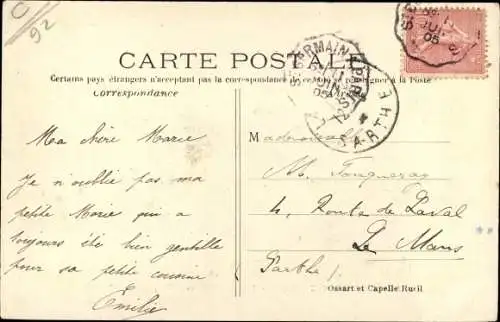 92
CARTE POSTALE
Certains pays étrangers n'acceptant pas la correspondance de ce côté, se renseigner à la Poste
Correspondance
Ma chère Marie
Je n'oublie pas ma
petite Marie qui a
toujours été bien gentille
pour sa petite cousine
Emilie
SARTHE
05
Mademoiselle
M. Fougueray
4, Route de Laval
Le Mans
Sarthe
Ossart et Capelle Rueil